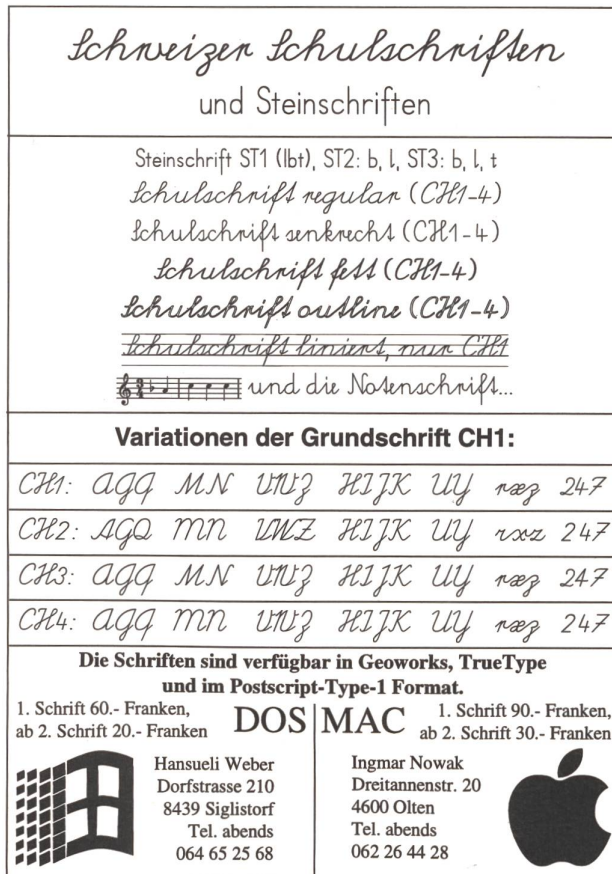 Schweizer Schulschriften
und Steinschriften
Steinschrift ST1 (lbt), ST2: b, l, ST3: b, l, t
Schulschrift regular (CH1-4)
Schulschrift senkrecht (CH1-4)
Schulschrift fett (CH1-4)
Schulschrift outline (CH1-4)
Schulschrift liniert, nur CH1
und die Notenschrift...
Variationen der Grundschrift CH1:
CH1: AGQ MN VWZ HIJK UY rxz 247
CH2: AGQ MN VWZ HIJK UY rxz 247
CH3: AGQ MN VWZ HIJK UY rxz 247
CH4: AGQ MN VWZ HIJK UY rxz 247
Die Schriften sind verfügbar in Geoworks, TrueType
und im Postscript-Type-1 Format.
1. Schrift 60.- Franken,
ab 2. Schrift 20.- Franken
DOS
MAC
1. Schrift 90.- Franken,
ab 2. Schrift 30.- Franken
Hansueli Weber
Dorfstrasse 210
8439 Siglistorf
Tel. abends
064 65 25 68
Ingmar Nowak
Dreitannenstr. 20
4600 Olten
Tel. abends
062 26 44 28